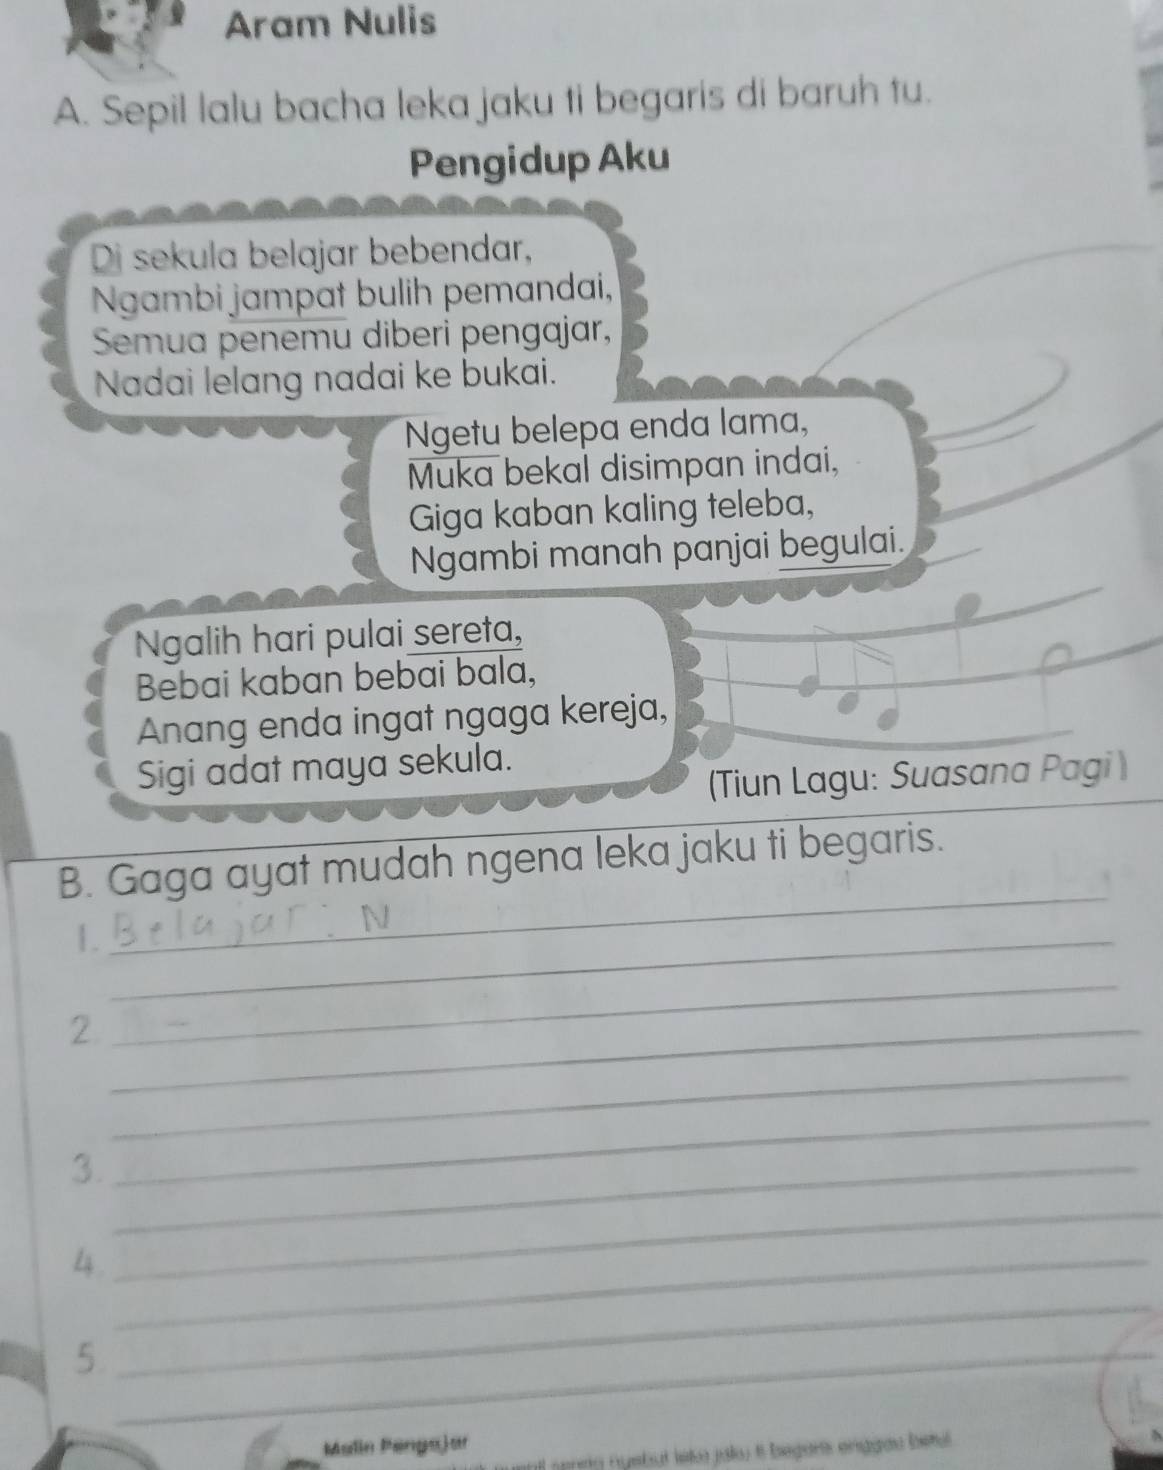 Aram Nulis
A. Sepil lalu bacha leka jaku ti begaris di baruh tu.
Pengidup Aku
Di sekula belajar bebendar,
Ngambi jampat bulih pemandai,
Semua penemu diberi pengajar,
Nadai lelang nadai ke bukai.
Ngetu belepa enda lama,
Muka bekal disimpan indai,
Giga kaban kaling teleba,
Ngambi manah panjai begulai.
Ngalih hari pulai sereta,
Bebai kaban bebai bala,
Anang enda ingat ngaga kereja,
Sigi adat maya sekula.
(Tiun Lagu: Suasana Pagi)
B. Gaga ayat mudah ngena leka jaku ti begaris.
1. Belajar : N
2.
3.
4.
5.
Malin Pengajar
nyebut leka jaku ti begaris enggau betul